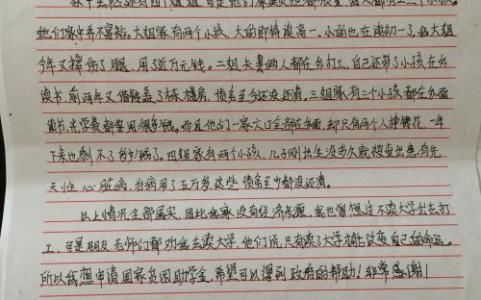 她们家中并不富裕，大姐家有两个小孩，大的即将读高一，小的也在读初一了，我大姐
今年又摔伤了腿，用了近万元钱。二姐夫妻两人都在乡打工，自己还带了小孩在乡
读书，前两年又借账盖了栋楼房，债务至今还没还清。三姐家有三个小孩都在乡
读书，光学费都要用很多钱。而且他们一家六口全部在外面，却只有两个人挣钱花，一年
下来也剩不了多少钱了。四姐家有两个小孩，儿子刚出生没多久就被查出患有先
天性心脏病，治病用了五万多，这些债务至今都没还清。
以上情况全部属实，因此我家没有经济来源，我也曾想过不读大学出去打
工，可是朋友、老师们帮劝我去读大学，他们说，只有读了大学才能改变自己的命运。
所以我想申请国家贫困助学金，希望可以得到政府的帮助！非常感谢！